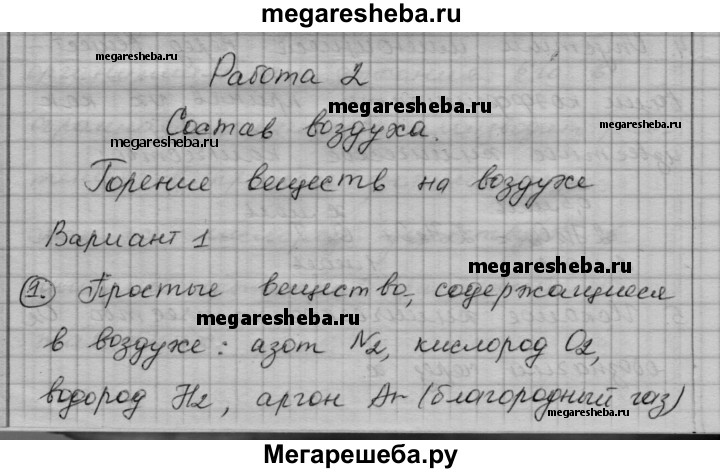 megaresheba.ru
megaresheba.ru
Работа 2
megaresheba.ru
megaresheba.ru
megaresheba.ru
Состав воздуха.
Горение веществ на воздухе
Вариант 1
megaresheba.ru
1. Простые вещество, содержащиеся
megaresheba.ru
в воздухе: азот N2, кислород O2,
водород H2, аргон Ar (благородный газ)
megaresheba.ru
megaresheba.ru
Мегарешеба.ру